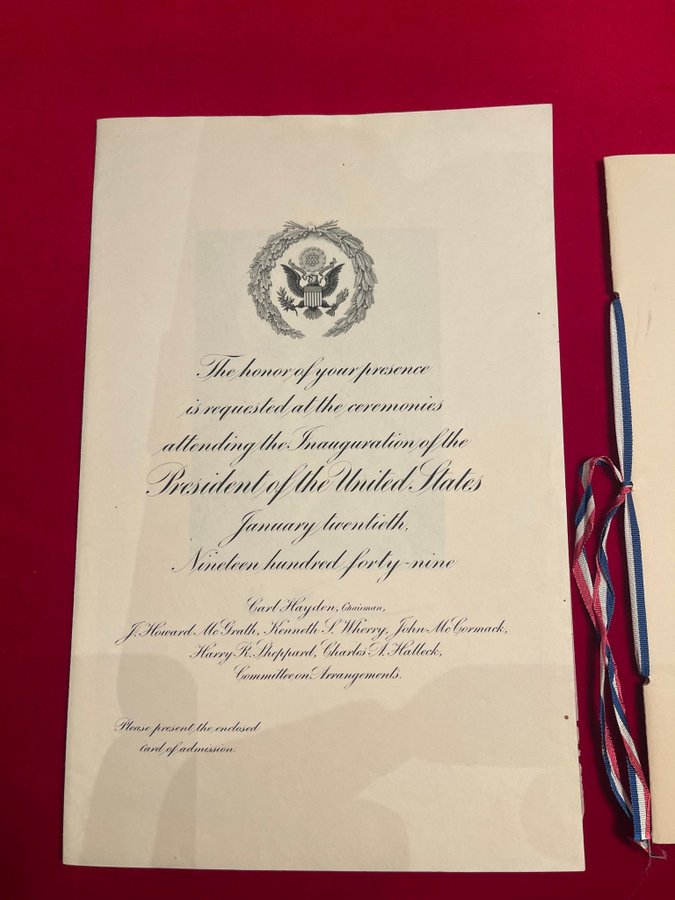 The honor of your presence
is requested at the ceremonies
attending the Inauguration of the
President of the United States
January twentieth,
Nineteen hundred forty-nine
Carl Hayden, Chairman,
J. Howard McGrath, Kenneth S. Wherry, John McCormack,
Harry R. Sheppard, Charles A. Halleck,
Committee on Arrangements.
Please present the enclosed
card of admission.